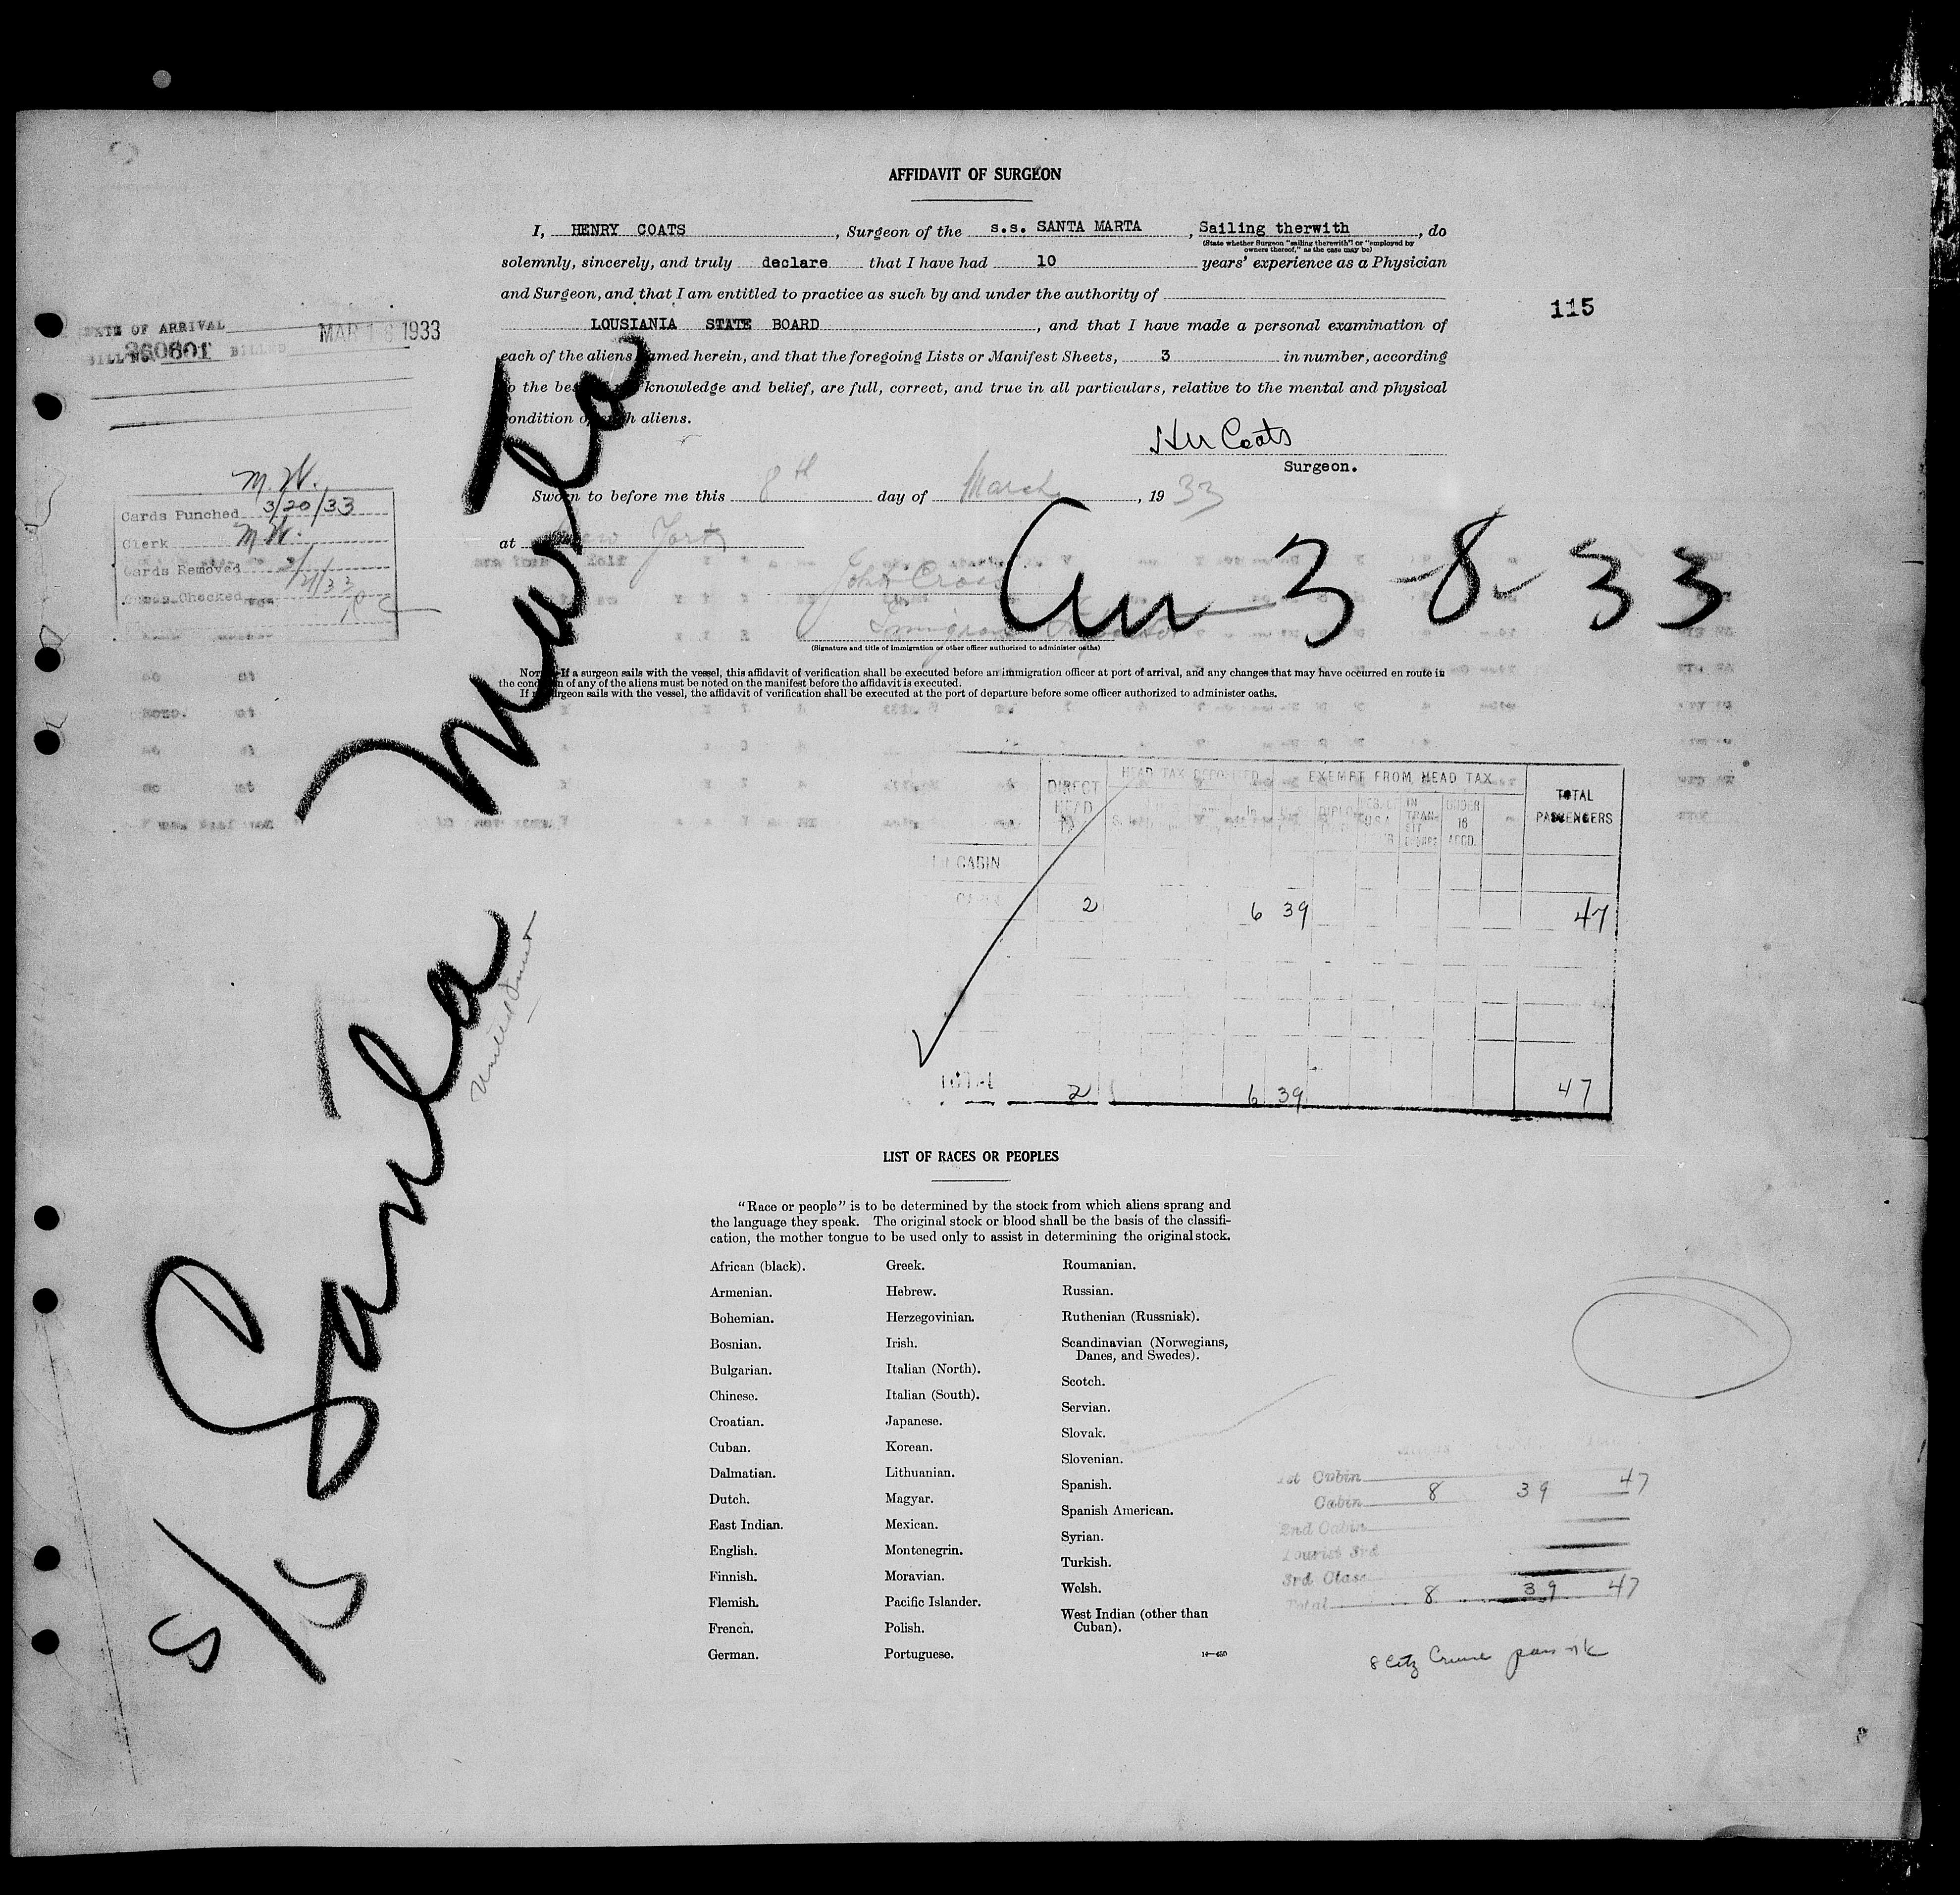 AFFIDAVIT OF SURGEON
I, HENRY COATS, Surgeon of the s.s. SANTA MARTA, Sailing therwith, do
(State whether Surgeon "sailing therewith" or "employed by
owners thereof," as the case may be)
solemnly, sincerely, and truly declare that I have had 10 years' experience as a Physician
and Surgeon, and that I am entitled to practice as such by and under the authority of
LOUSIANIA STATE BOARD, and that I have made a personal examination of
each of the aliens named herein, and that the foregoing Lists or Manifest Sheets, 3 in number, according
to the best knowledge and belief, are full, correct, and true in all particulars, relative to the mental and physical
condition of such aliens.
115
DATE OF ARRIVAL MAR 18 1933
BILL NO. 360801 BILLED
H W Coats
Surgeon.
Sworn to before me this 8th day of March, 1933
at New York
John Cross
Immigrant Inspector
(Signature and title of immigration or other officer authorized to administer oaths)
M.W.
Cards Punched 3/20/33
Clerk M.W.
Cards Removed
Cards Checked
Arr 3-8-33
NOTE.—If a surgeon sails with the vessel, this affidavit of verification shall be executed before an immigration officer at port of arrival, and any changes that may have occurred en route in
the condition of any of the aliens must be noted on the manifest before the affidavit is executed.
If no surgeon sails with the vessel, the affidavit of verification shall be executed at the port of departure before some officer authorized to administer oaths.
S/S Santa Marta
United Fruit
DIRECT HEAD TAX HEAD TAX DEPOSITED EXEMPT FROM HEAD TAX TOTAL PASSENGERS
IN TRANSIT UNDER 16 ACCD.
CABIN
CABIN 2 6 39 47
TOTAL 2 6 39 47
LIST OF RACES OR PEOPLES
"Race or people" is to be determined by the stock from which aliens sprang and
the language they speak. The original stock or blood shall be the basis of the classifi-
cation, the mother tongue to be used only to assist in determining the original stock.
African (black).
Armenian.
Bohemian.
Bosnian.
Bulgarian.
Chinese.
Croatian.
Cuban.
Dalmatian.
Dutch.
East Indian.
English.
Finnish.
Flemish.
French.
German.
Greek.
Hebrew.
Herzegovinian.
Irish.
Italian (North).
Italian (South).
Japanese.
Korean.
Lithuanian.
Magyar.
Mexican.
Montenegrin.
Moravian.
Pacific Islander.
Polish.
Portuguese.
Roumanian.
Russian.
Ruthenian (Russniak).
Scandinavian (Norwegians,
Danes, and Swedes).
Scotch.
Servian.
Slovak.
Slovenian.
Spanish.
Spanish American.
Syrian.
Turkish.
Welsh.
West Indian (other than
Cuban).
14—450
1st Cabin
Cabin 8 39 47
2nd Cabin
Tourist 3rd
3rd Class
Total 8 39 47
8 Citz Cruise pass